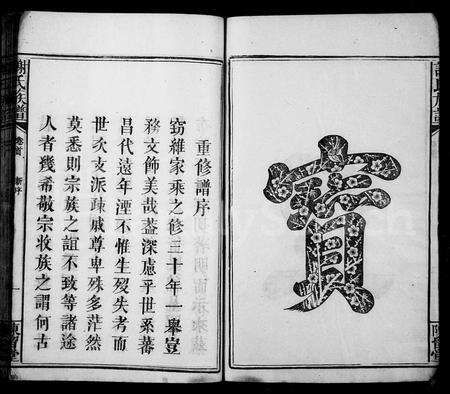 寶
重修譜序
竊維家乘之修三十年一舉豈
務文飾美哉蓋深慮乎世系蕃
昌代遠年湮不惟生歿失考而
世次支派疎戚尊卑殊多茫然
莫悉則宗族之誼不致等諸途
人者幾希敬宗收族之謂何古
謝氏族譜
卷首
新序
一